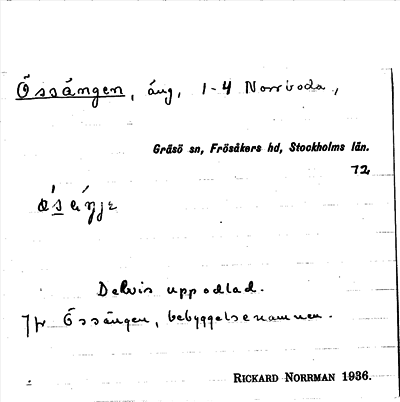 Össängen, äng, 1-4 Norrboda,
Gräsö sn, Frösåkers hd, Stockholms län.
72
Delvis uppodlad.
Jfr Össängen, bebyggelsenamnen.
RICKARD NORRMAN 1936.